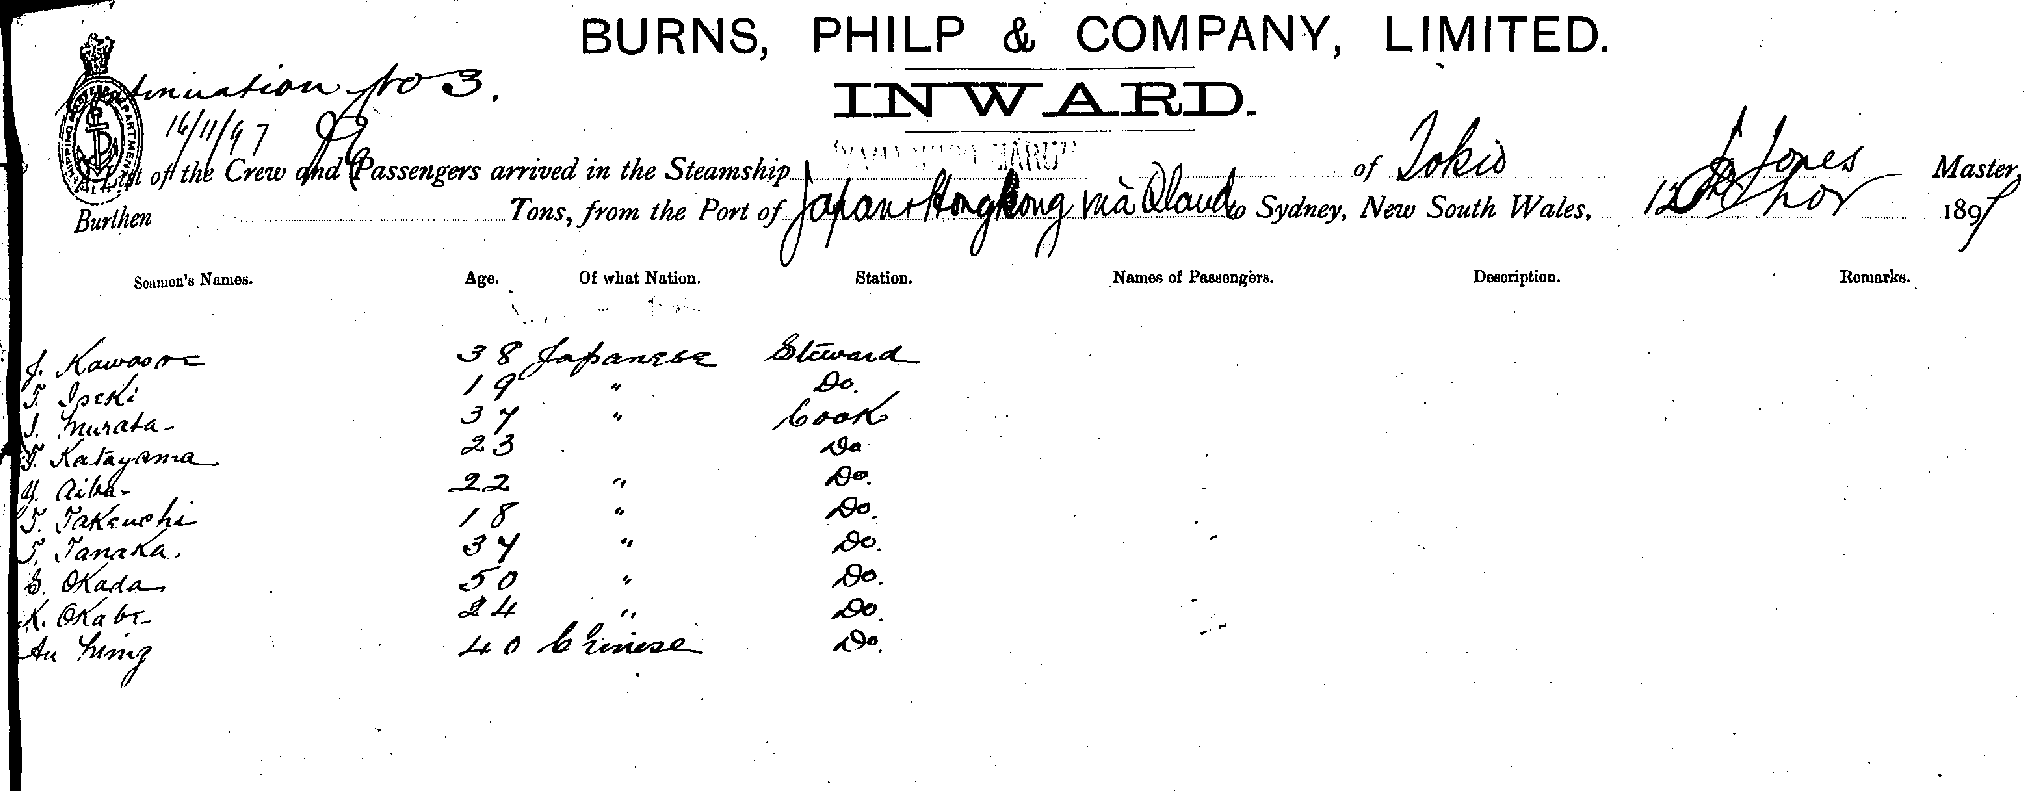 BURNS, PHILP & COMPANY, LIMITED.
Continuation No 3.
INWARD.
16/11/97
List of the Crew and Passengers arrived in the Steamship MARU of Tokio J Jones Master,
Burthen Tons, from the Port of Japan & Hongkong viâ Qland to Sydney, New South Wales, 15th Nov 1897
Seamen's Names. Age. Of what Nation. Station. Names of Passengers. Description. Remarks.
J. 38 Japanese Steward
T. Iseki 19 " Do.
I. Murata 37 " Cook
T. Katayama 23 Do
Y. Aiba 22 " Do.
T. Takeuchi 18 " Do.
T. Tanaka. 37 " Do.
S. Okada 50 " Do.
K. Okabe 24 " Do.
Au 40 Chinese Do.